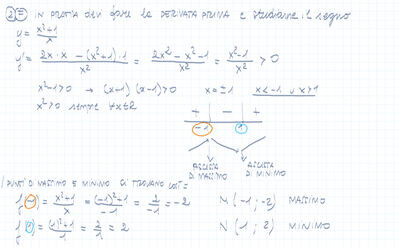 2) = IN PRATICA devi fare la DERIVATA PRIMA e studiarne il segno
y = x²+1 / x
y' = 2x · x - (x²+1) · 1 / x² = 2x² - x² - 1 / x² = x² - 1 / x² > 0
x²-1>0 → (x-1) (x-1)>0 x = ±1 x<-1 ∪ x>1
x²>0 sempre ∀x∈R + - +
-1 1
ASCISSA DI MASSIMO ASCISSA DI MINIMO
I PUNTI DI MASSIMO E MINIMO SI TROVANO COSÌ =
f(-1) = x²+1 / x = (-1)²+1 / -1 = 2 / -1 = -2 M (-1 ; -2) MASSIMO
f(1) = (1)²+1 / 1 = 2 / 1 = 2 N (1 ; 2) MINIMO